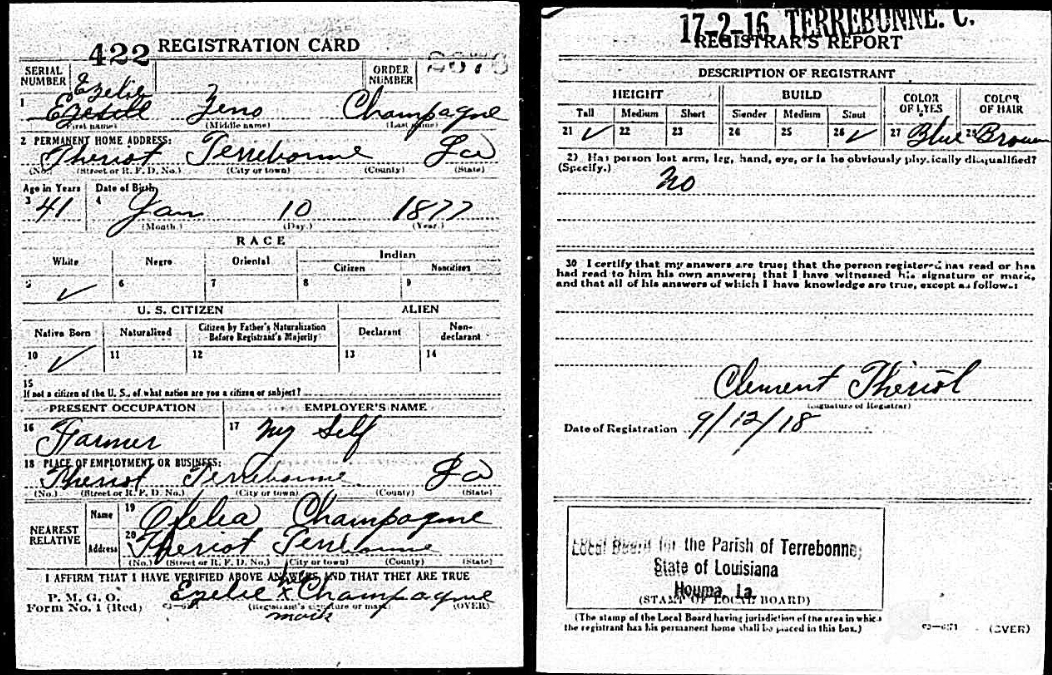 422 REGISTRATION CARD
SERIAL NUMBER
ORDER NUMBER
Ezelie
1 Zeno Champagne
(First name) (Middle name) (Last name)
2 PERMANENT HOME ADDRESS:
Theriot Terrebonne La
(No.) (Street or R. F. D. No.) (City or town) (County) (State)
Age in Years Date of Birth
3 41 4 Jan 10 1877
(Month.) (Day.) (Year.)
RACE
White Negro Oriental Indian
Citizen Noncitizen
5 ✓ 6 7 8 9
U. S. CITIZEN ALIEN
Native Born Naturalized Citizen by Father's Naturalization Before Registrant's Majority Declarant Non-declarant
10 ✓ 11 12 13 14
15
If not a citizen of the U. S., of what nation are you a citizen or subject?
PRESENT OCCUPATION EMPLOYER'S NAME
16 Farmer 17 My Self
18 PLACE OF EMPLOYMENT OR BUSINESS:
Theriot Terrebonne La
(No.) (Street or R. F. D. No.) (City or town) (County) (State)
NEAREST RELATIVE
Name 19 Ofelia Champagne
Address 20 Theriot Terrebonne
(No.) (Street or R. F. D. No.) (City or town) (County) (State)
I AFFIRM THAT I HAVE VERIFIED ABOVE ANSWERS AND THAT THEY ARE TRUE
P. M. G. O.
Form No. 1 (Red)
Ezelie his x Champagne
(Registrant's signature or mark) (OVER)
mark
17-2-16 TERREBONNE. C.
REGISTRAR'S REPORT
DESCRIPTION OF REGISTRANT
HEIGHT BUILD COLOR OF EYES COLOR OF HAIR
Tall Medium Short Slender Medium Stout
21 ✓ 22 23 24 25 26 ✓ 27 Blue 28 Brown
29 Has person lost arm, leg, hand, eye, or is he obviously physically disqualified?
(Specify.)
No
30 I certify that my answers are true; that the person registered has read or has
had read to him his own answers; that I have witnessed his signature or mark,
and that all of his answers of which I have knowledge are true, except as follows:
Clement Theriot
(Signature of Registrar)
Date of Registration 9/12/18
Local Board for the Parish of Terrebonne,
State of Louisiana
Houma, La.
(STAMP OF LOCAL BOARD)
(The stamp of the Local Board having jurisdiction of the area in which
the registrant has his permanent home shall be placed in this box.)
(OVER)